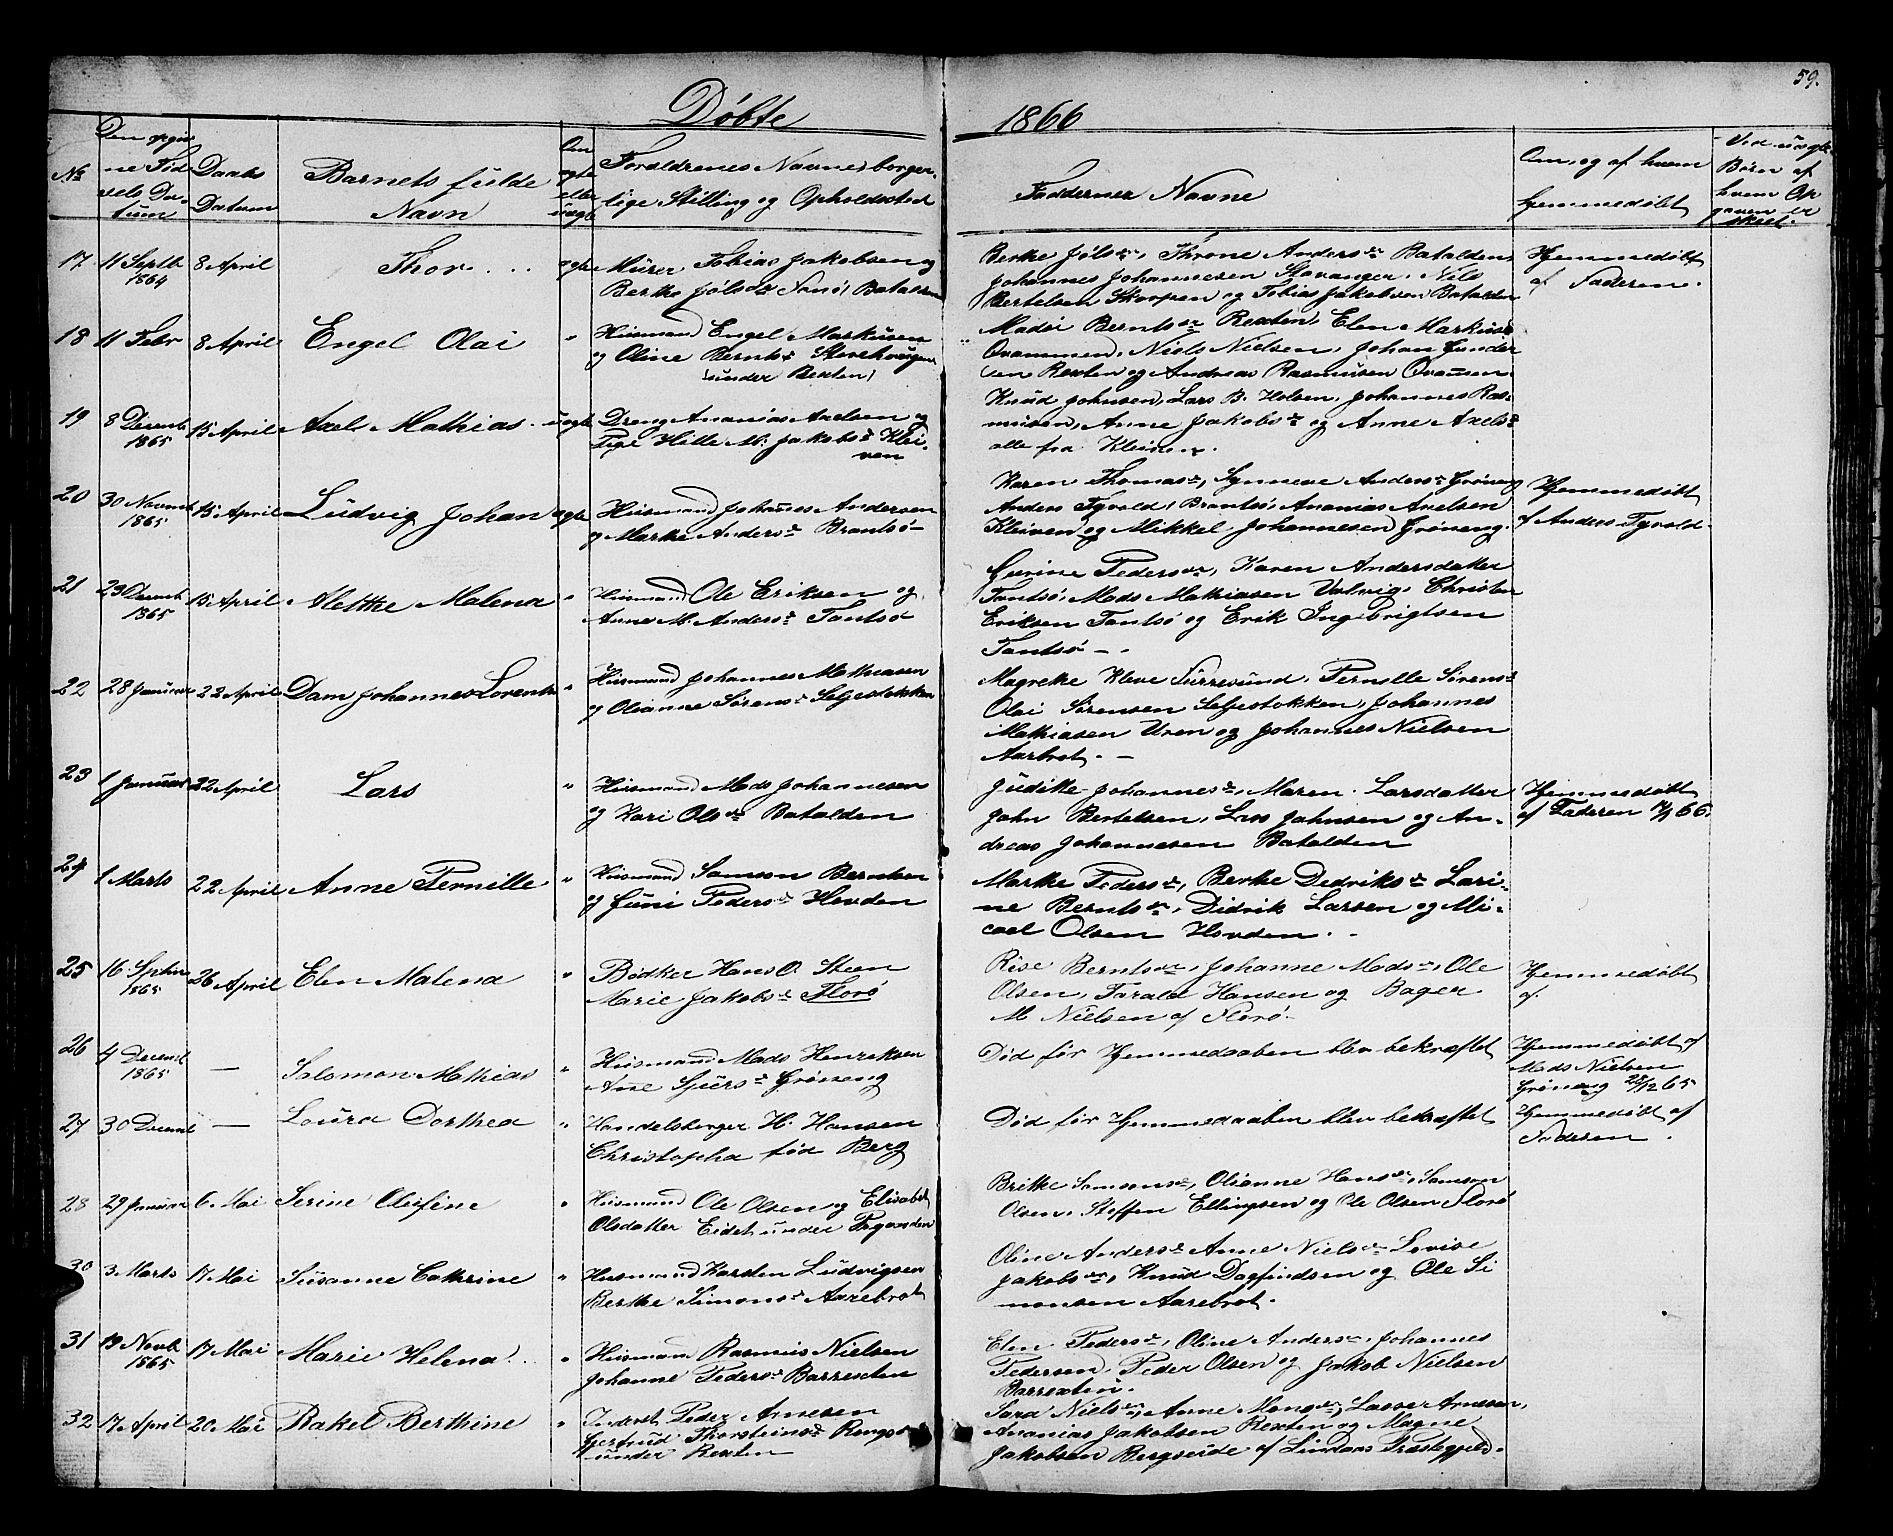 59.
Døbte
1866
No
Den opgiv
ne Fød
sels Da-
tum
Daabs
Datum
Barnets fulde
Navn
Om
ægte
eller
uægte
Forældrenes Navne, borger-
lige Stilling og Opholdssted
Faddernes Navne
Om, og af hvem
hjemmedøbt
Ved uægte
Børn af
hvem Op
gaven er
skeet.
17 11 Septb 1864 8 April Thor ægte
Murer Tobias Jakobsen og
Berthe Jølsdr Nanø, Batalden
Berthe Jølsdr, Throne Andersdr Batalden,
Johannes Johannesen Stavanger. Nils
Bertelsen Skorpen og Tobias Jakobsen Batalden
Hjemmedøbt
af Faderen.
18 11 Febr 8 April Engel Olai "
Husmand Engel Markusen
og Oline Berntsdr
(under Rexten)
Berntsdr Rexten, Elen Markus
Niels Nielsen, Johan Gunder
sen Rexten og Andreas Rasmusen
19 8 Decemb 1865 15 April Axel Mathias uægte
Dreng Ananias Axelsen og
Pige Hille M. Jakobsdr Klei-
ven
Knud Johnsen, Lars B. Holsen, Johannes Ras-
musen, Anne Jakobsdr og Anne Axelsdr
alle fra Kleiven.
20 30 Novemb 1865 15 April Ludvig Johan ægte
Husmand Johannes Andersen
og Marthe Andersdr Brantsø
Karen Thomasdr, Synneve Andersdr Grøneng
Anders Tyvold, Brantsø, Ananias Axelsen
Kleiven og Mikkel Johannesen Grøneng.
Hjemmedøbt
af Anders Tyvold.
21 23 Decemb 1865 15 April Alethe Malena "
Husmand Ole Eriksen og
Anne M. Andersdr Tantsø
Gurine Pedersdr, Karen Andersdatter
Tantsø, Mads Mathiasen Valvig, Christen
Eriksen Tantsø og Erik Ingebrigtsen
Tantsø -.
22 28 Januar 22 April Dam Johannes Lorents "
Husmand Johannes Mathiasen
og Olianne Sørensdr Seljestokken
Magrethe Kleve Surresund, Pernille Sørensdr
Olai Sørensen Seljestokken, Johannes
Mathiasen Uren og Johannes Nielsen
Aarbrot. -
23 1 Januar 22 April Lars "
Husmand Mads Johannesen
og Kari Olsdr Batalden
Judithe Johannesdr, Maren Larsdatter
John Bertelsen, Lars Johnsen og An-
dreas Johannesen Batalden
Hjemmedøbt
af Faderen 66.
24 1 Marts 22 April Anne Pernille "
Husmand Samson Berntsen
og Guni Pedersdr Hovden
Marthe Pedersdr, Berthe Dedriksdr Lari-
ne Berntsdr, Didrik Larsen og Mi-
cael Olsen Hovden.
25 16 Septbr 1865 26 April Elen Malena "
Bødker Hans O. Steen
Marie Jakobsdr Florø
Rise Berntsdr, Johanne Madsdr, Ole
Olsen, Tarald Hansen og Bager
M. Nielsen af Florø.
Hjemmedøbt
af.
26 4 Decemb 1865 — Salomon Mathias "
Husmand Mads Henriksen
Ane Sjursdr Grøneng
Død før Hjemmedaaben blev bekræftet
Hjemmedøbt af
Mads Nielsen
Grøneng 28/12 65
27 30 Decemb — Loura Dorthea "
Handelsborger H. Hansen
Christopha fød Berg
Død før Hjemmedaaben blev bekræftet
Hjemmedøbt af
Faderen.
28 29 Januar 6 Mai Serine Olefine "
Husmand Ole Olsen og Elisabet
Olsdatter Eidet under
Brithe Samsonsdr, Olianne Hansdr, Samson
Olsen, Steffen Ellingsen og Ole Olsen Florø
30 3 Marts 17 Mai Susanne Cathrine "
Husmand Karsten Ludvigsen
Berthe Simonsdr Aarebrot
Oline Andersdr Anne Nielsdr Lovise
Jakobsdr, Knud Dagfindsen og Ole Si
monsen Aarebrot.
31 19 Novb 1865 17 Mai Marie Helena "
Husmand Rasmus Nielsen
Johanne Pedersdr Barrexten
Elen Pedersdr, Oline Andersdr, Johannes
Pedersen, Peder Olsen og Jakob Nielsen
Barrexten.
32 17 April 20 Mai Rakel Berthine "
Inderst Peder Arnesen
Gjertrud Thorsteinsdr
under Rexten
Sara Nielsdr, Anne Monsdr, Lasse Arnesen,
Ananias Jakobsen Rexten og Magne
Jakobsen Bergseide af Lindaas Præstegjeld.